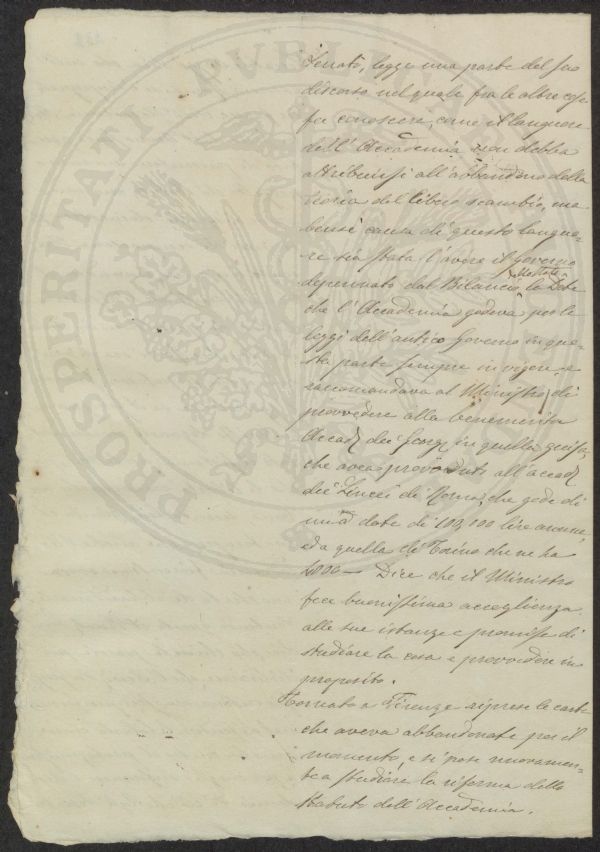 PROSPERITATI PVBLICAE
Senato, legge una parte del suo
discorso nel quale fra le altre cose
fu conoscere, come il languore
dell'Accademia non debba
attribuirsi all'abbandono della
teoria del libero scambio, ma
bensì causa di questo languo-
re sia stata l'avere il governo
depennato dal Bilancio la Dote
che l'Accademia godeva per le
leggi dell'antico Governo in que-
sta parte sempre in vigore, e
raccomandava al Ministro di
provvedere alla benemerita
Accad. dei Georg. in quella guisa,
che avea provveduto all'accad.
dei Lincei di Roma, che gode di
una dote di 100,000 lire annue,
ed a quella di Torino che ne ha
Dice che il Ministro
fece buonissima accoglienza
alle sue istanze e promise di
studiare la cosa e provvedere in
proposito.
Tornato a Firenze riprese le carte
che aveva abbandonate per il
momento, e si pose nuovamen-
te a studiare la riforma dello
Statuto dell'Accademia.